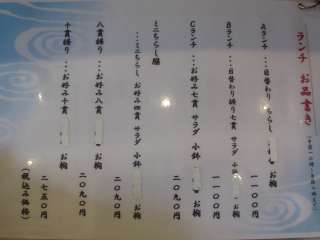 ランチ お品書き
Aランチ
...日替わりちらし お椀
一一〇〇円
Bランチ
...日替わり握り七貫 サラダ 小鉢 お椀
一一〇〇円
Cランチ
...お好み七貫 サラダ 小鉢 お椀
二〇九〇円
ミニちらし膳
...ミニちらし お好み四貫 サラダ 小鉢 お椀
二〇九〇円
八貫握り
...お好み八貫 お椀
二〇九〇円
十貫握り
...お好み十貫 お椀
二七五〇円
(税込み価格)